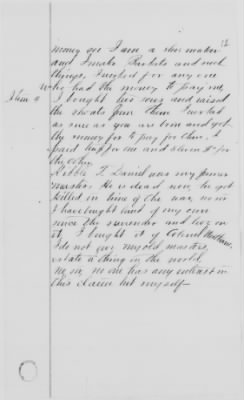 12
money as I am a shoe maker
and I make Baskets and such
things, I worked for any one
who had the money to pay me,
I bought two sows and raised
the shoats from them I worked
as sure as you are born and got
the money for to pay for them, I
paid for one and
the other.
T. Daniel was my former
master. He is dead now, he got
killed in time of the war, now
I have bought land of my own
since the surrender and live on
it, I bought it of Colonel
I do not owe my old masters,
estate a thing in the world,
No, sir, no one has any interest in
this claim but myself